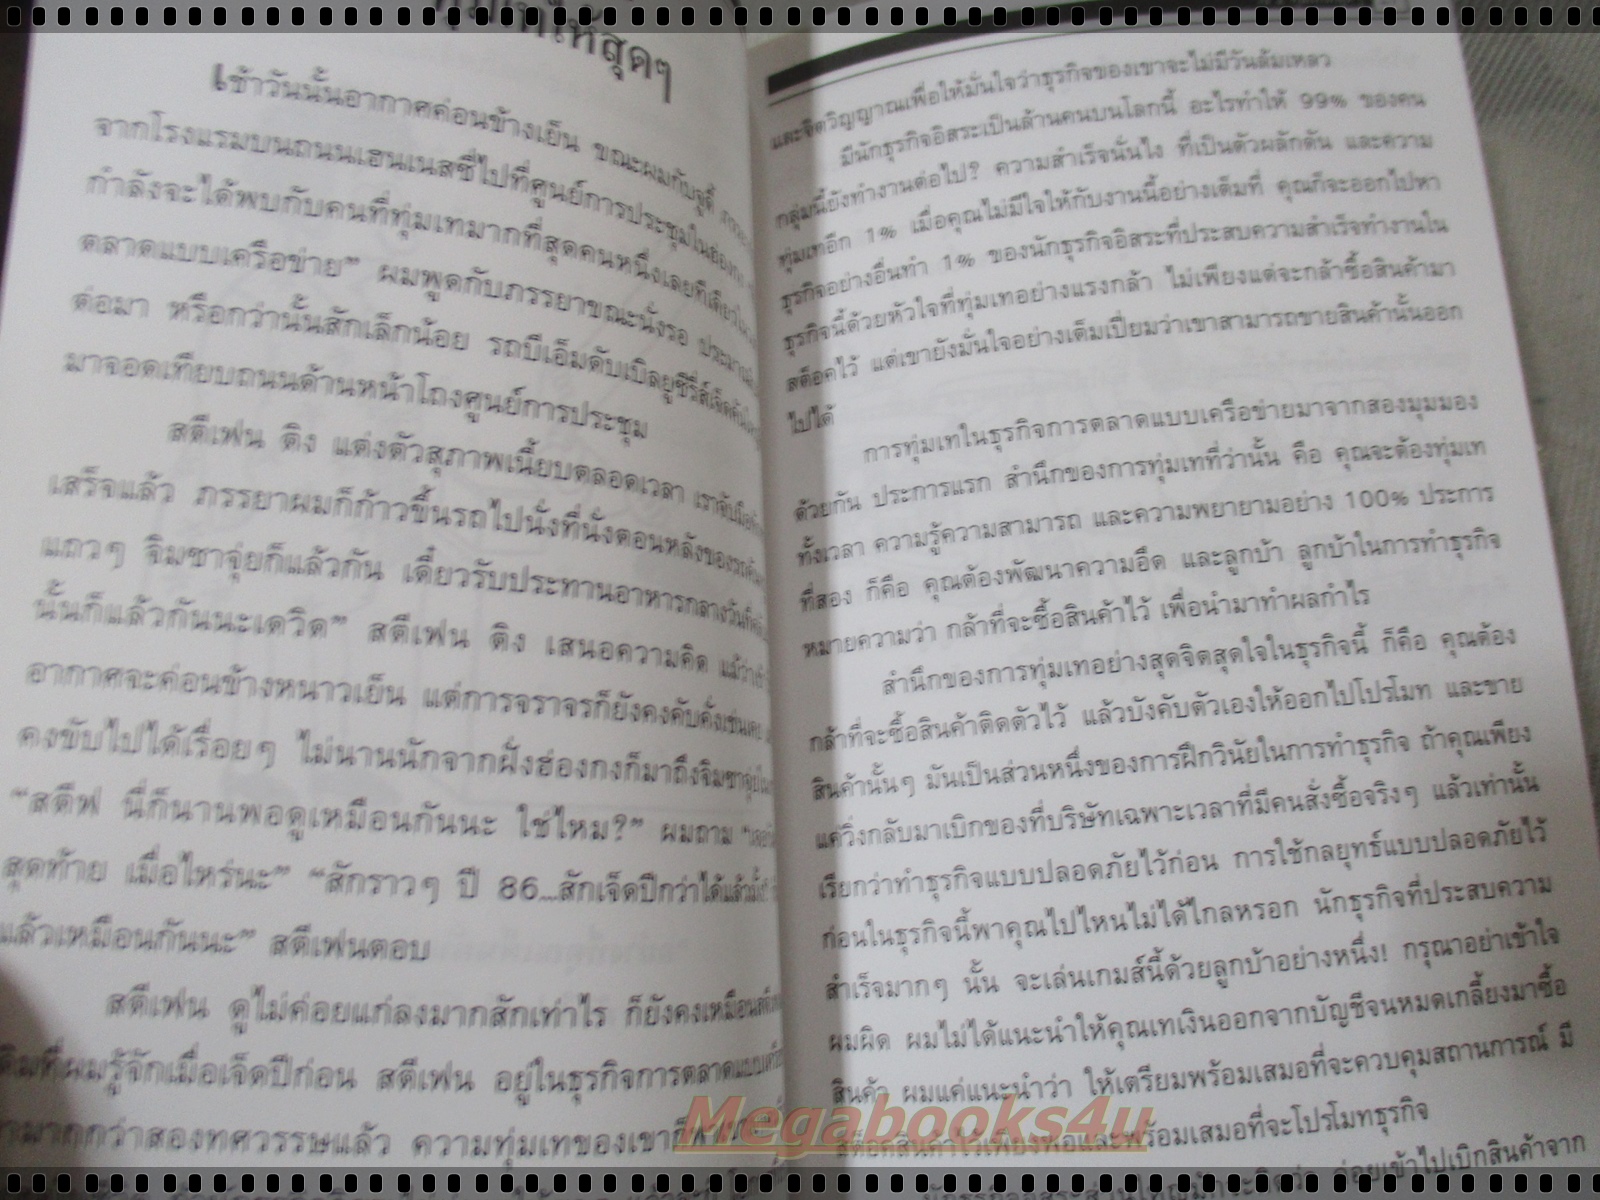 ให้สุดๆ
เช้าวันนั้นอากาศค่อนข้างเย็น ขณะผมกับจูดี้
จากโรงแรมบนถนนเฮนเนสซี่ไปที่ศูนย์การประชุมในฮ่องกง
กำลังจะได้พบกับคนที่ทุ่มเทมากที่สุดคนหนึ่งเลยทีเดียวใน
ตลาดแบบเครือข่าย” ผมพูดกับภรรยาขณะนั่งรอ
ต่อมา หรือกว่านั้นสักเล็กน้อย รถบีเอ็มดับเบิลยูซีรี่ส์เจ็ด
มาจอดเทียบถนนด้านหน้าโถงศูนย์การประชุม
สตีเฟน ติง แต่งตัวสุภาพเนี้ยบตลอดเวลา เราจับมือ
เสร็จแล้ว ภรรยาผมก็ก้าวขึ้นรถไปนั่งที่นั่งตอนหลังของรถ
แถวๆ จิมซาจุ่ยก็แล้วกัน เดี๋ยวรับประทานอาหารกลางวัน
นั้นก็แล้วกันนะเดวิด” สตีเฟน ติง เสนอความคิด แม้ว่า
อากาศจะค่อนข้างหนาวเย็น แต่การจราจรก็ยังคงคับคั่งเช่นเคย
คงขับไปได้เรื่อยๆ ไม่นานนักจากฝั่งฮ่องกงก็มาถึงจิมซาจุ่ย
“สตีฟ นี่ก็นานพอดูเหมือนกันนะ ใช่ไหม?” ผมถาม
สุดท้าย เมื่อไหร่นะ” “สักราวๆ ปี 86....สักเจ็ดปีกว่าได้แล้วมั้ง!
แล้วเหมือนกันนะ” สตีเฟนตอบ
สตีเฟน ดูไม่ค่อยแก่ลงมากสักเท่าไร ก็ยังคงเหมือน
เดิมที่ผมรู้จักเมื่อเจ็ดปีก่อน สตีเฟน อยู่ในธุรกิจการตลาดแบบ
มากกว่าสองทศวรรษแล้ว ความทุ่มเทของเขา
และจิตวิญญาณเพื่อให้มั่นใจว่าธุรกิจของเขาจะไม่มีวันล้มเหลว
มีนักธุรกิจอิสระเป็นล้านคนบนโลกนี้ อะไรทำให้ 99% ของคน
กลุ่มนี้ยังทำงานต่อไป? ความสำเร็จนั่นไง ที่เป็นตัวผลักดัน และความ
ทุ่มเทอีก 1% เมื่อคุณไม่มีใจให้กับงานนี้อย่างเต็มที่ คุณก็จะออกไปหา
ธุรกิจอย่างอื่นทำ 1% ของนักธุรกิจอิสระที่ประสบความสำเร็จทำงานใน
ธุรกิจนี้ด้วยหัวใจที่ทุ่มเทอย่างแรงกล้า ไม่เพียงแต่จะกล้าซื้อสินค้ามา
สต็อคไว้ แต่เขายังมั่นใจอย่างเต็มเปี่ยมว่าเขาสามารถขายสินค้านั้นออก
ไปได้
การทุ่มเทในธุรกิจการตลาดแบบเครือข่ายมาจากสองมุมมอง
ด้วยกัน ประการแรก สำนึกของการทุ่มเทที่ว่านั้น คือ คุณจะต้องทุ่มเท
ทั้งเวลา ความรู้ความสามารถ และความพยายามอย่าง 100% ประการ
ที่สอง ก็คือ คุณต้องพัฒนาความอึด และลูกบ้า ลูกบ้าในการทำธุรกิจ
หมายความว่า กล้าที่จะซื้อสินค้าไว้ เพื่อนำมาทำผลกำไร
สำนึกของการทุ่มเทอย่างสุดจิตสุดใจในธุรกิจนี้ ก็คือ คุณต้อง
กล้าที่จะซื้อสินค้าติดตัวไว้ แล้วบังคับตัวเองให้ออกไปโปรโมท และขาย
สินค้านั้นๆ มันเป็นส่วนหนึ่งของการฝึกวินัยในการทำธุรกิจ ถ้าคุณเพียง
แค่วิ่งกลับมาเบิกของที่บริษัทเฉพาะเวลาที่มีคนสั่งซื้อจริงๆ แล้วเท่านั้น
เรียกว่าทำธุรกิจแบบปลอดภัยไว้ก่อน การใช้กลยุทธ์แบบปลอดภัยไว้
ก่อนในธุรกิจนี้พาคุณไปไหนไม่ได้ไกลหรอก นักธุรกิจที่ประสบความ
สำเร็จมากๆ นั้น จะเล่นเกมส์นี้ด้วยลูกบ้าอย่างหนึ่ง! กรุณาอย่าเข้าใจ
ผมผิด ผมไม่ได้แนะนำให้คุณเทเงินออกจากบัญชีจนหมดเกลี้ยงมาซื้อ
สินค้า ผมแค่แนะนำว่า ให้เตรียมพร้อมเสมอที่จะควบคุมสถานการณ์ มี
สต็อคสินค้าไว้เพียงพอและพร้อมเสมอที่จะโปรโมทธุรกิจ
ค่อยเข้าไปเบิกสินค้าจาก
Megabooks4u